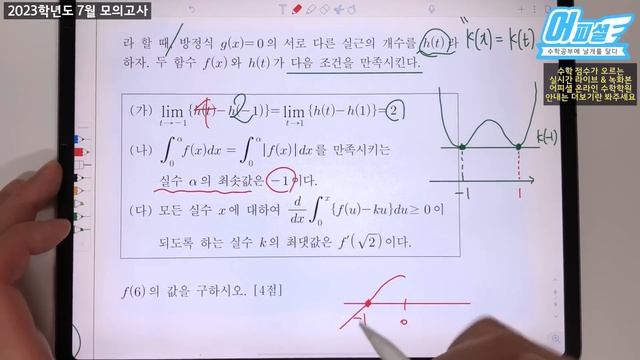 2023학년도 7월 모의고사
라 할 때, 방정식 g(x)=0의 서로 다른 실근의 개수를 h(t)라
하자. 두 함수 f(x)와 h(t)가 다음 조건을 만족시킨다.
"k(x) = k(t)
어피셀
수학공부에 날개를 달다
수학 점수가 오르는
실시간 라이브 & 녹화본
어피셀 온라인 수학학원
안내는 더보기란 봐주세요
(가) lim_{t→-1} {h(t)-h(-1)} = lim_{t→1} {h(t)-h(1)} = 2
4 2
(나) ∫_0^α f(x)dx = ∫_0^α |f(x)|dx를 만족시키는
실수 α의 최솟값은 -1이다.
(다) 모든 실수 x에 대하여 d/dx ∫_0^x {f(u)-ku}du ≥ 0이
되도록 하는 실수 k의 최댓값은 f'(√2)이다.
k(-1)
-1 1
f(6)의 값을 구하시오. [4점]
-1 0